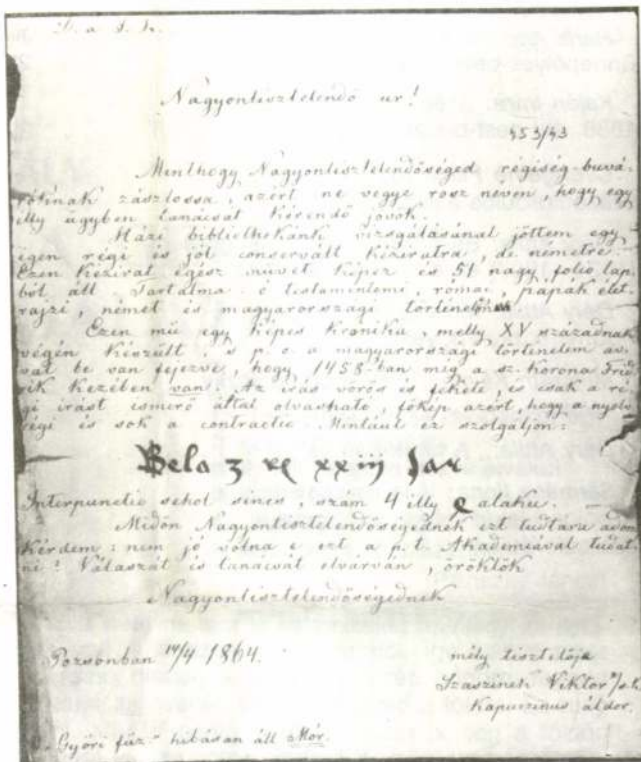 Nagyontisztelendő ur!
453/43
Minthogy Nagyontisztelendőséged régiség-buvá-
rainak zászlossa, azért ne vegye rosz néven, hogy egy
illy ügyben tanácsot kérendő jövök.
Házi bibliothekánk vizsgálásánál jöttem egy
igen régi és jól conservált kéziratra, de németre.
Ezen kézirat egész müvet képez és 51 nagy folio lap
ból áll. Tartalma: ó testamentomi, római, pápák élet
rajzi, német és magyarországi történelem
Ezen mü egy képes kronika, melly XV századnak
végén készült, s p. o. a magyarországi történelem av-
val be van fejezve, hogy 1458-ban még a sz. korona Frid
rik kezében van. Az irás vörös és fekete, és csak a ré-
gi irást ismerő által olvasható, főkép azért, hogy a nyelv
régi és sok a contractio. Mintául ez szolgáljon:
Bela 3 xxiij Jar
Interpunctio sehol sincs, szám 4 illy alaku.
Midőn Nagyontisztelendőségednek ezt tudtára adom
kérdem: nem jó volna e ezt a p. t. Akademiával tudat-
ni! Válaszát és tanácsát elvárván, öröklök
Nagyontisztelendőségednek
Pozsonban 14/4 1864.
mély tisztelője
Szaszinek Viktor s/k
Kapuczinus áldor.
Győri füz. hibásan áll Mór.